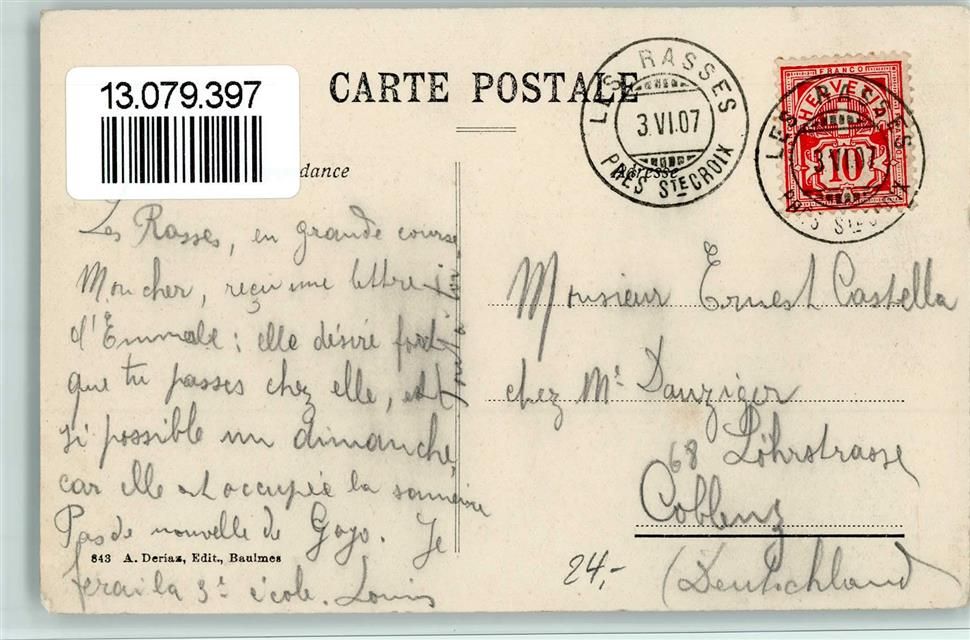 13.079.397
CARTE POSTALE
LES RASSES
3.VI.07
PRÈS STE CROIX
FRANCO
HELVETIA
10
LES RASSES
3.VI.07
PRÈS STE CROIX
dance
Adresse
Les Rasses, en grande course
Mon cher, reçu une lettre
d'Emmale : elle désire fort
que tu passes chez elle, et
si possible un dimanche,
car elle est occupée la semaine
Pas de nouvelle de Gogo. Je
ferai la 3e école. Louis
843 A. Deriaz, Edit., Baulmes
Monsieur Ernest Castella
chez Mr Danziger
68 Löhrstrasse
Coblenz
(Deutschland)
24,-